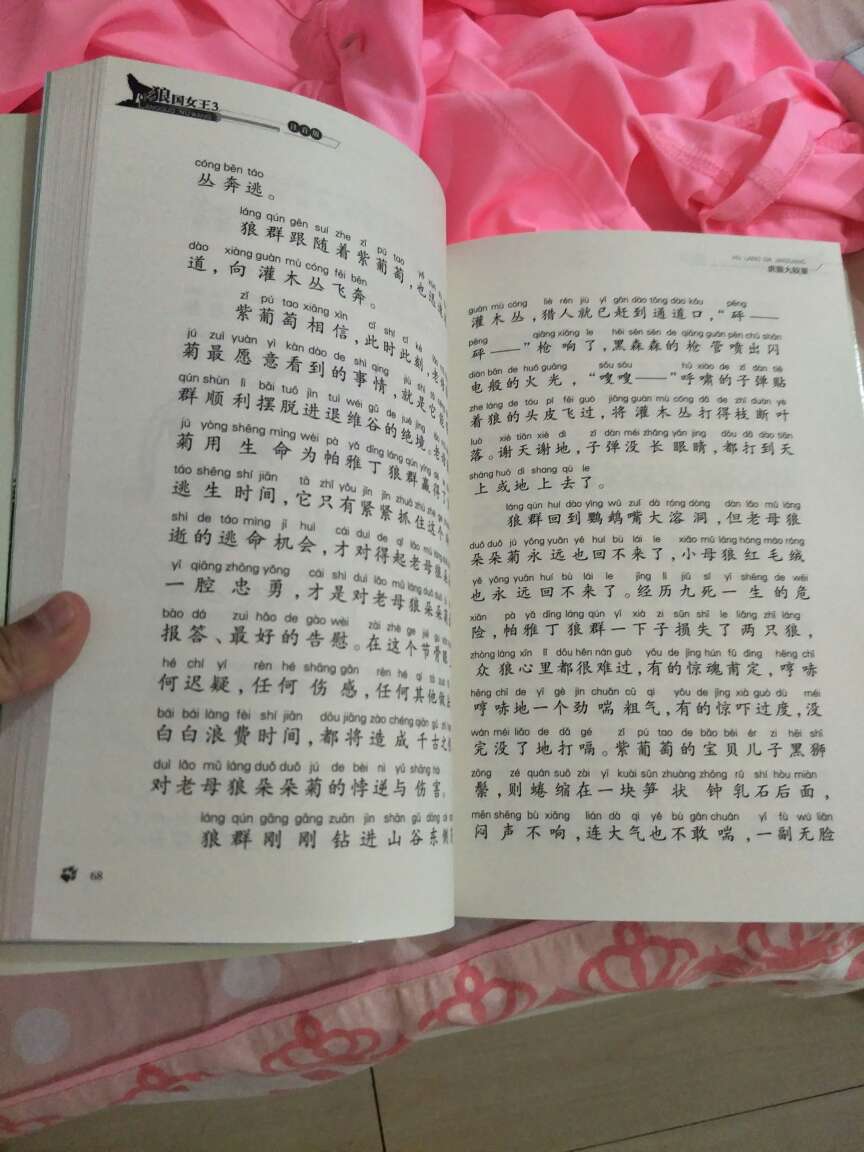 狼国女王3
注音版
cóng bēn táo
丛奔逃。
láng qún gēn suí zhe zǐ pú tao
狼群跟随着紫葡萄，也迅速
dào xiàng guàn mù cóng fēi bēn
道，向灌木丛飞奔。
zǐ pú tao xiāng xìn cǐ shí cǐ kè
紫葡萄相信，此时此刻，老
jú zuì yuàn yì kàn dào de shì qing jiù shì
菊最愿意看到的事情，就是它能
qún shùn lì bǎi tuō jìn tuì wéi gǔ de jué jìng
群顺利摆脱进退维谷的绝境。老
jú yòng shēng mìng wèi pà yǎ dīng láng qún yíng dé
菊用生命为帕雅丁狼群赢得了
táo shēng shí jiān tā zhǐ yǒu jǐn jǐn zhuā zhù zhè ge
逃生时间，它只有紧紧抓住这个
shì de táo mìng jī huì cái duì de qǐ lǎo mǔ láng
逝的逃命机会，才对得起老母狼
yī qiāng zhōng yǒng cái shì duì lǎo mǔ láng duǒ duǒ
一腔忠勇，才是对老母狼朵朵
bào dá zuì hǎo de gào wèi zài zhè ge jié gu
报答、最好的告慰。在这个节骨眼
hé chí yí rèn hé shāng gǎn rèn hé qí tā
何迟疑，任何伤感，任何其他做
bái bái làng fèi shí jiān dōu jiāng zào chéng qiān gǔ zhī
白白浪费时间，都将造成千古之
duì lǎo mǔ láng duǒ duǒ jú de bèi nì yǔ shāng hài
对老母狼朵朵菊的悖逆与伤害。
láng qún gāng gāng zuān jìn shān gǔ dōng cè
狼群刚刚钻进山谷东侧
68
guàn mù cóng liè rén jiù yǐ gǎn dào tōng dào kǒu pēng
灌木丛，猎人就已赶到通道口，“砰——
pēng qiāng xiǎng le hēi sēn sēn de qiāng guǎn pēn chū shǎn
砰——”枪响了，黑森森的枪管喷出闪
diàn bān de huǒ guāng sōu sōu hū xiào de zǐ dàn tiē
电般的火光，“嗖嗖——”呼啸的子弹贴
zhe láng de tóu pí fēi guò jiāng guàn mù cóng dǎ de zhī duàn yè
着狼的头皮飞过，将灌木丛打得枝断叶
luò xiè tiān xiè dì zǐ dàn méi zhǎng yǎn jing dōu dǎ dào tiān
落。谢天谢地，子弹没长眼睛，都打到天
shàng huò dì shang qù le
上或地上去了。
láng qún huí dào yīng wǔ zuǐ dà róng dòng dàn lǎo mǔ láng
狼群回到鹦鹉嘴大溶洞，但老母狼
duǒ duǒ jú yǒng yuǎn yě huí bù lái le xiǎo mǔ láng hóng máo róng
朵朵菊永远也回不来了，小母狼红毛绒
yě yǒng yuǎn huí bù lái le jīng lì jiǔ sǐ yī shēng de wēi
也永远回不来了。经历九死一生的危
xiǎn pà yǎ dīng láng qún yī xià zi sǔn shī le liǎng zhī láng
险，帕雅丁狼群一下子损失了两只狼，
zhòng láng xīn lǐ dōu hěn nán guò yǒu de jīng hún fǔ dìng hēng chī
众狼心里都很难过，有的惊魂甫定，哼哧
hēng chī de yī gè jìn chuǎn cū qì yǒu de jīng xià guò dù méi
哼哧地一个劲喘粗气，有的惊吓过度，没
wán méi liǎo de dǎ gé zǐ pú tao de bǎo bèi ér zi hēi shī
完没了地打嗝。紫葡萄的宝贝儿子黑狮
zōng zé quán suō zài yī kuài sǔn zhuàng zhōng rǔ shí hòu miàn
鬃，则蜷缩在一块笋状钟乳石后面，
mēn shēng bù xiǎng lián dà qì yě bù gǎn chuǎn yī fù wú liǎn
闷声不响，连大气也不敢喘，一副无脸